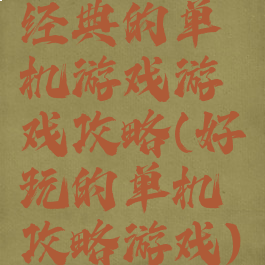 经典的单
机游戏游
戏攻略(好
玩的单机
攻略游戏)